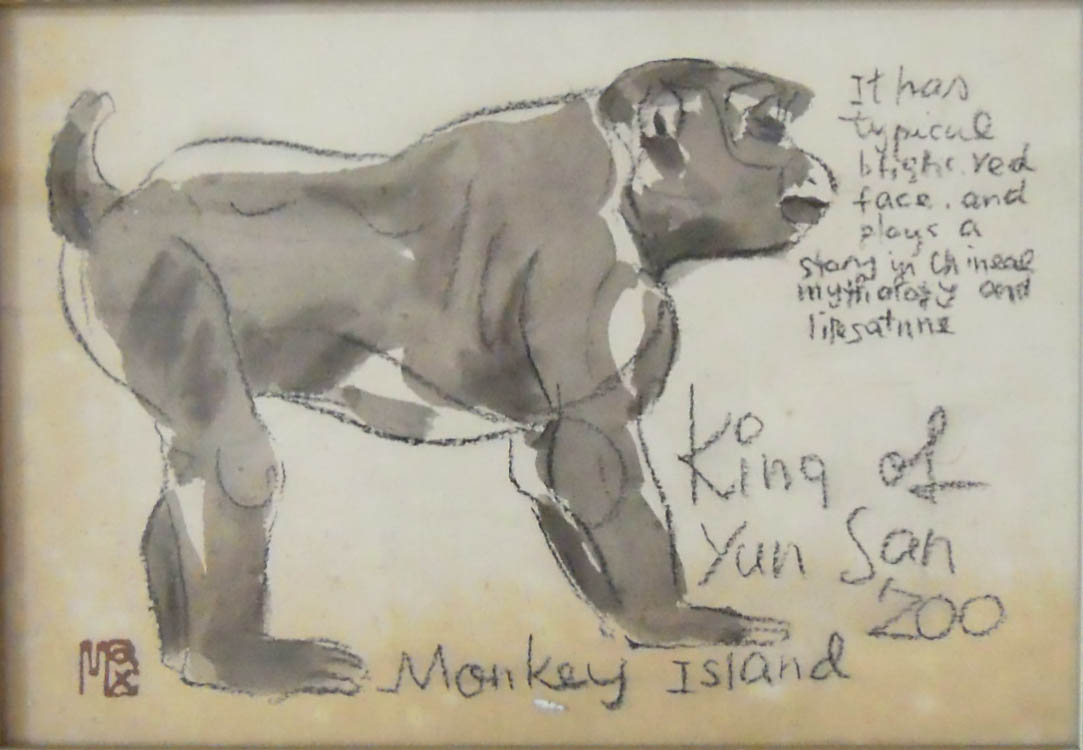 It has
typical
bright red
face. and
plays a
story in Chinese
mythology and
King of
Yun San
ZOO
Monkey Island
Max